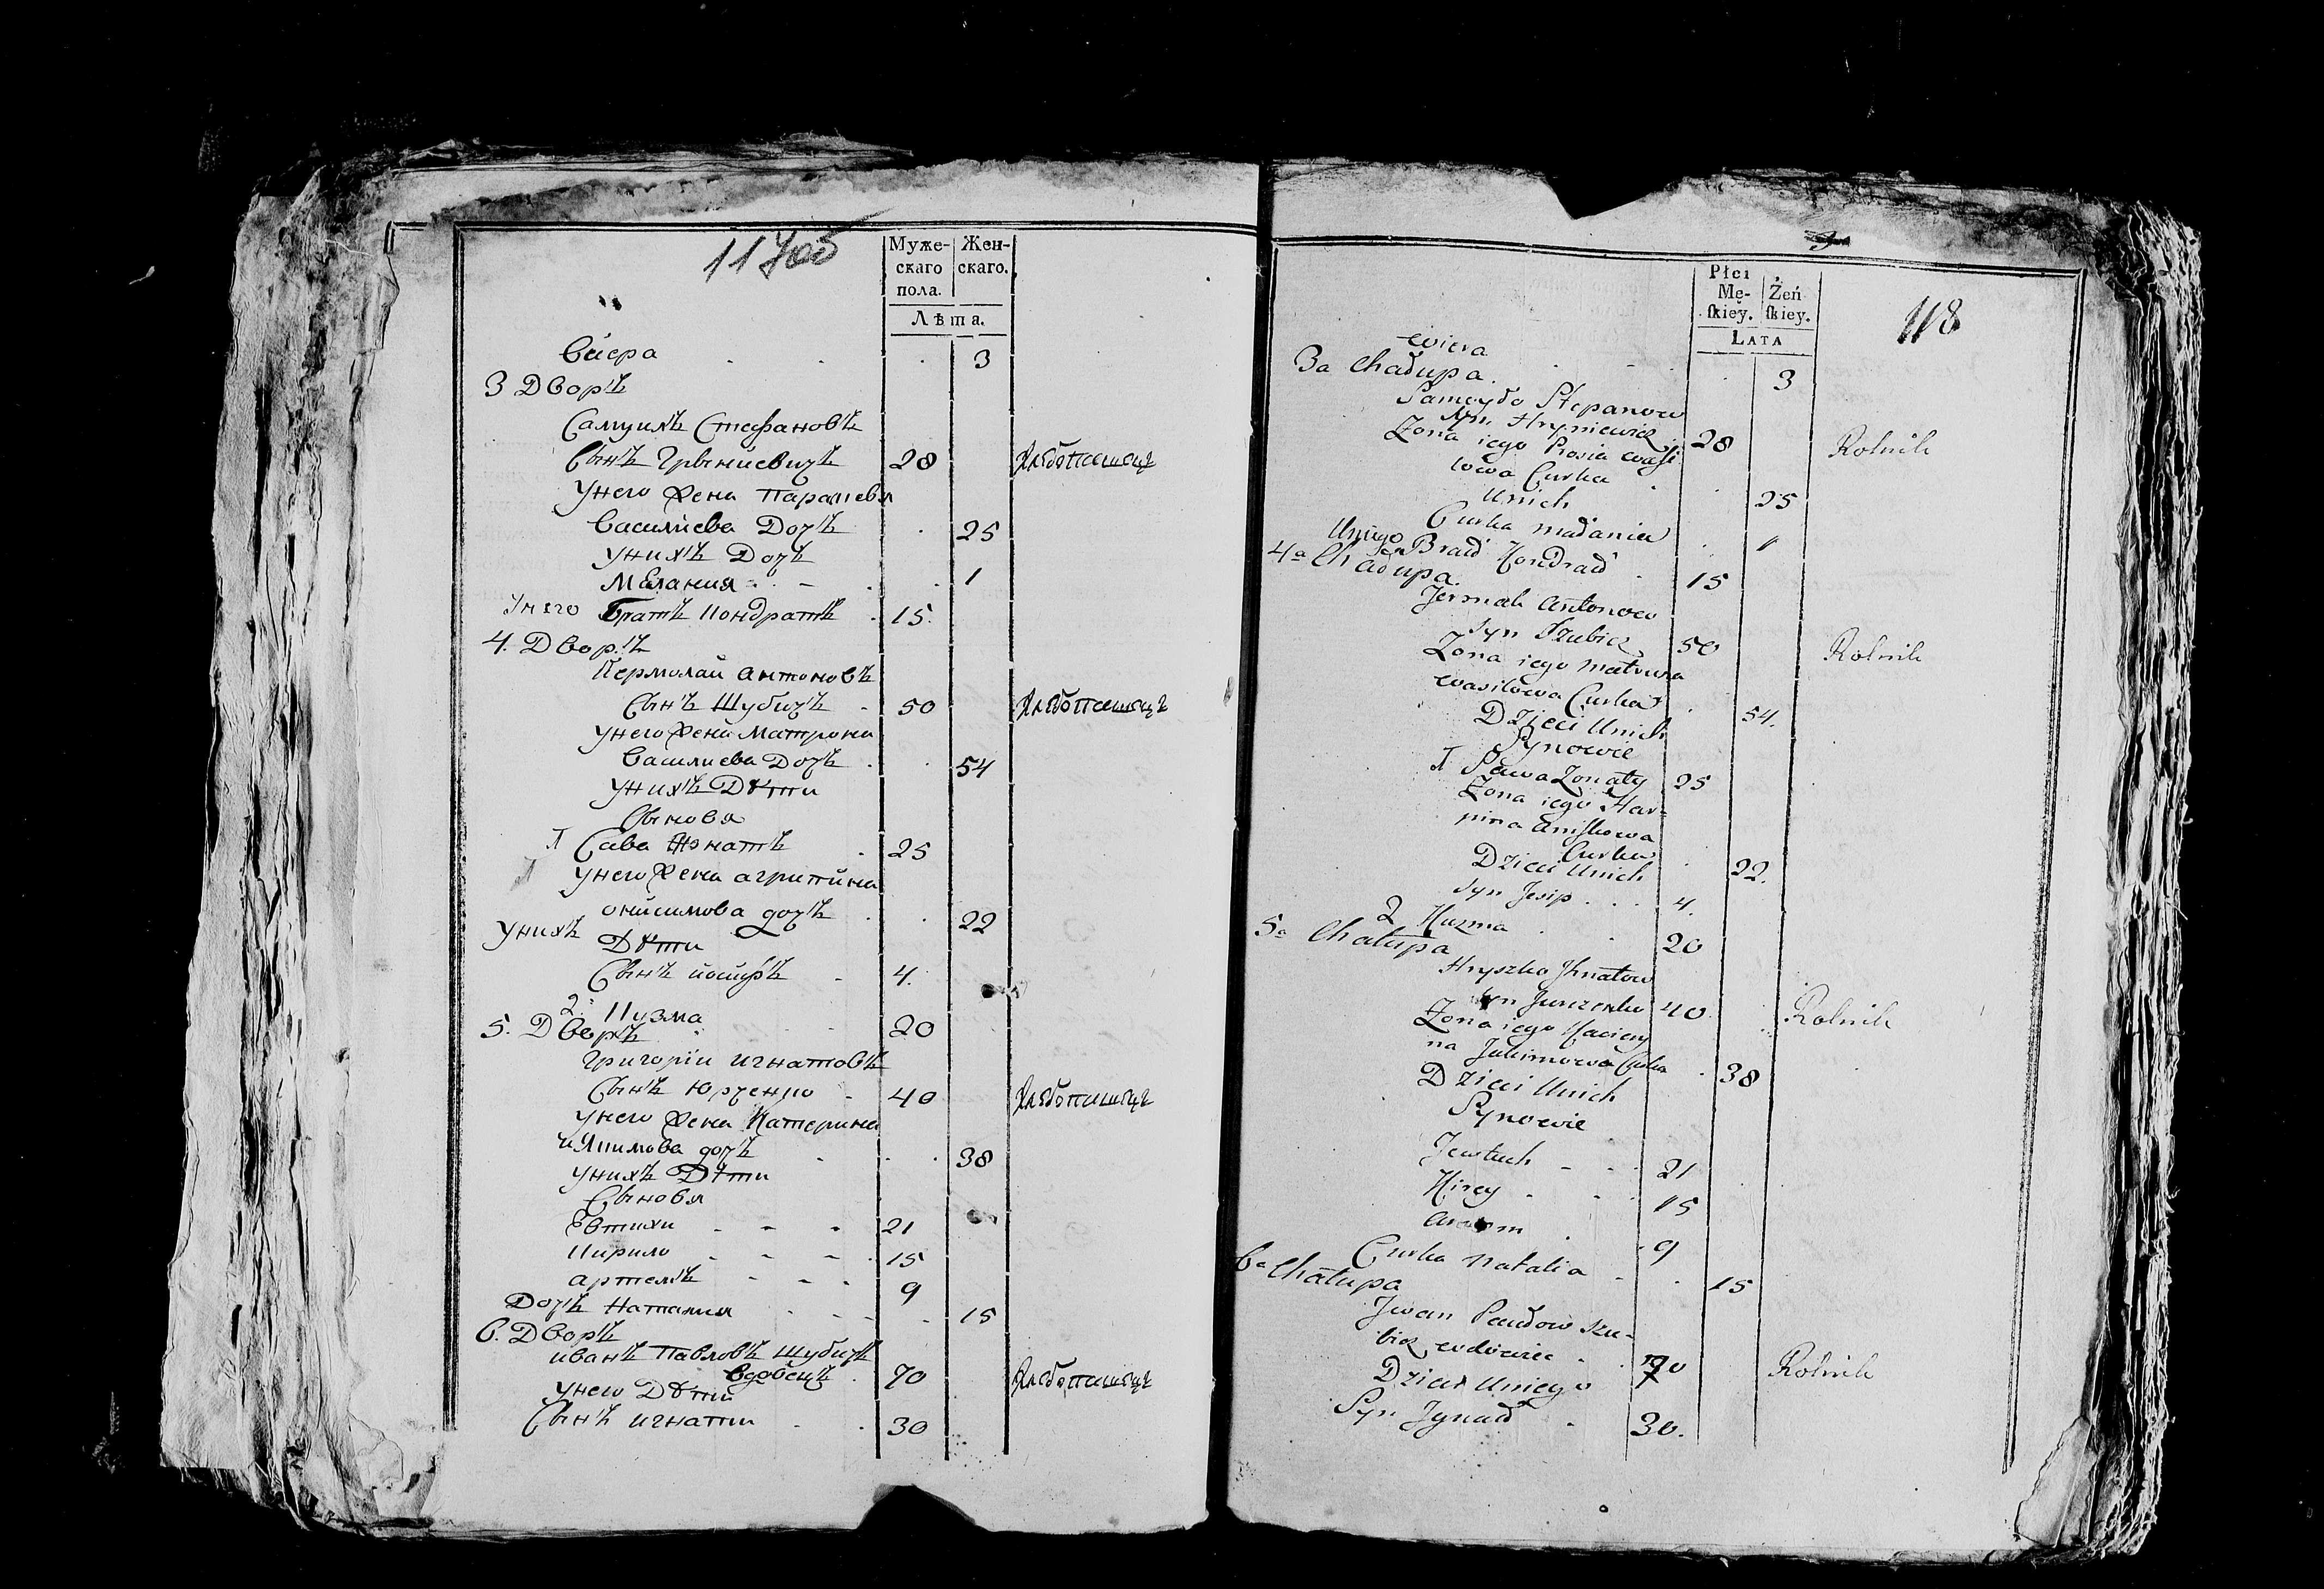 117об
Муже-
скаго
пола.
Жен-
скаго.
Лѣта.
Вѣера 3
3 Дворъ
Самуилъ Стефановъ
Сынъ Гръıниевичъ 28 Хлѣбопашецъ
Унего Жена Параскевя
Василиева Дочь 25
Унихъ Дочь
Мелания 1
Унего Братъ Кондратъ 15.
4. Дворъ
Кермолай антоновъ
Сынъ Шубичъ 50 Хлѣбопашецъ
Унего Жена Матрона
Василиева Дочь 54
Унихъ Дѣти
Сыновя
1 Сава Жонатъ 25
Унего Жена агрипина
онисимова дочь 22
Унихъ Дѣти
Сынъ йосифъ 4.
2. Кузма 20
5. Дворъ
Григории игнатовъ
Сынъ Юрченко 40 Хлѣбопашецъ
Унего Жена Катерина
Якимова дочь 38
Унихъ Дѣти
Сыновя
Евтихи 21
Кирило 15
артемъ 9
Дочь Наталия 15
6. Дворъ
иванъ Павловъ Шубичъ
вдовецъ 70 Хлѣбопашецъ
Унего Дѣти
Сынъ игнати 30
118
Płci
Mę-
ſkiey.
Żeń
ſkiey.
LATA
wiera 3
3a Chałupa
Samoyło Stepanow
syn Hryniewicz 28 Rolnik
Zona iego Prosia wasi
lowa Curka 25
Unich
Curka małania 1
Uniego Brat Kondrad 15
4a Chałupa
Jermak antonow
syn Szubicz 50 Rolnik
Zona iego matruna
wasilowa Curka 54.
Dzieci Unich
Synowie
1 Sawa Zonaty 25
Zona iego Har=
pina aniſkowa
Curka 22.
Dzieci Unich
syn Jesip 4.
2 Kuzma 20
5a Chałupa
Hryszko Jhnatow
syn Jurczenko 40. Rolnik
Zona iego Kaciery
na Jakimowa Curka 38
Dzieci Unich
Synowie
Jewtuch 21
Kirey 15
artom 9
Curka Natalia 15
6a Chałupa
Jwan Pawłow szu-
bicz wdowiec 70 Rolnik
Dzieci Uniego
Syn Jgnacd 30.